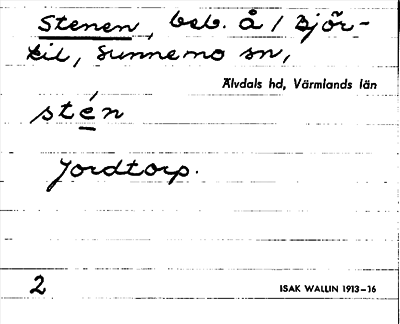 Stenen, beb. Å / Björ-
kil, Sunnemo sn,
Älvdals hd, Värmlands län
stén
Jordtorp.
2
ISAK WALLIN 1913–16